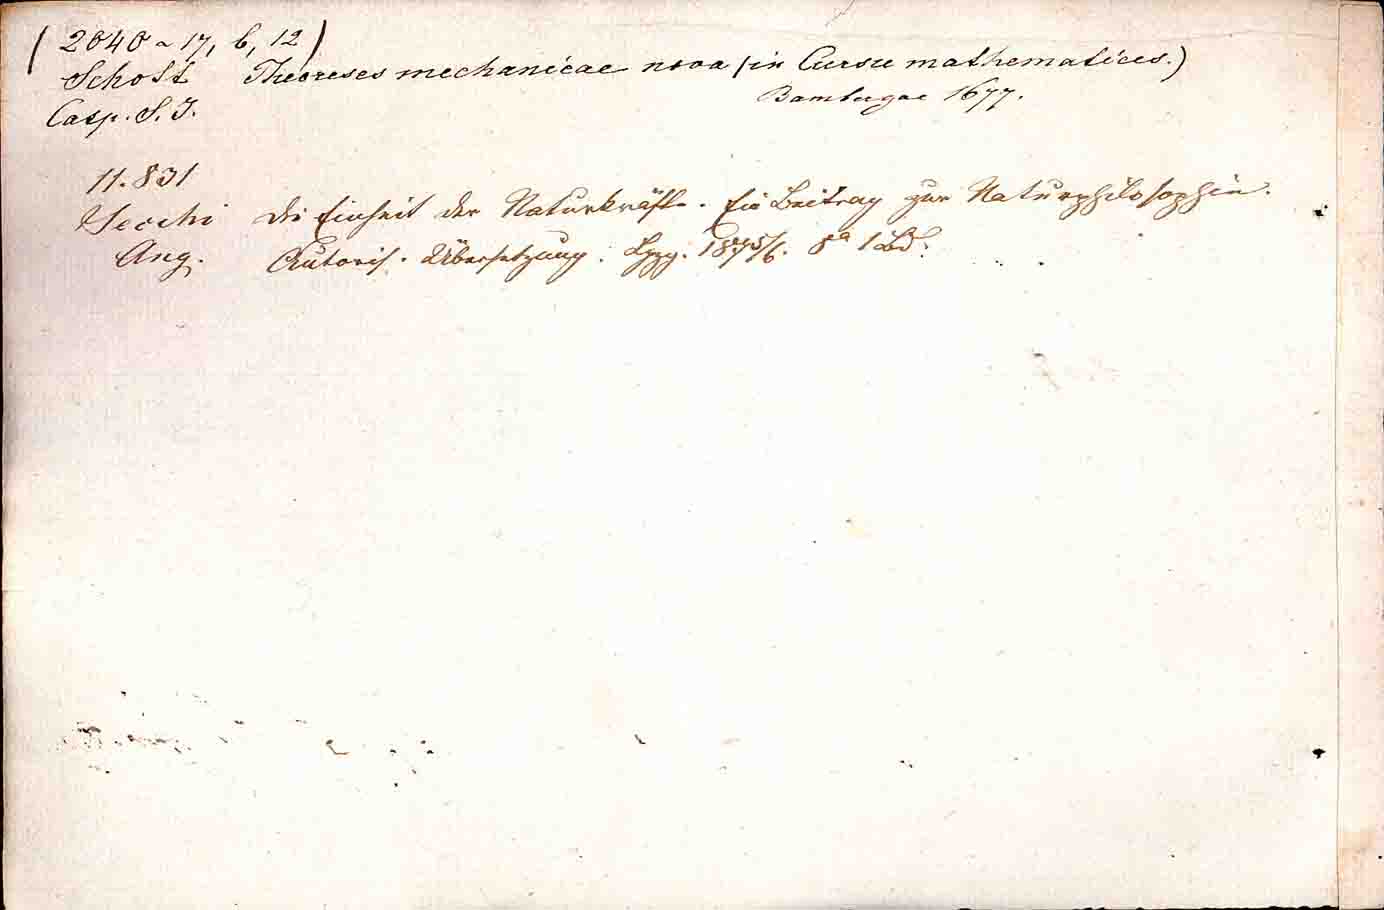 (2040 a 17, b, 12)
Schott Theoreses mechanicae nova (in Cursu mathematices.)
Casp. S. J. Bambergae 1677.
11.831
Secchi Die Einheit der Naturkräfte. Ein Beitrag zur Naturphilosophie.
Ang. Autoris. Übersetzung. Lpzg. 1875/6. 8° 1 Bd.